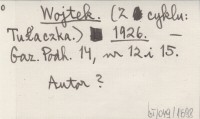 Wojtek. (Z cyklu:
Tułaczka.) 1926. —
Gaz. Podh. 14, nr 12 i 15.
Autor ?